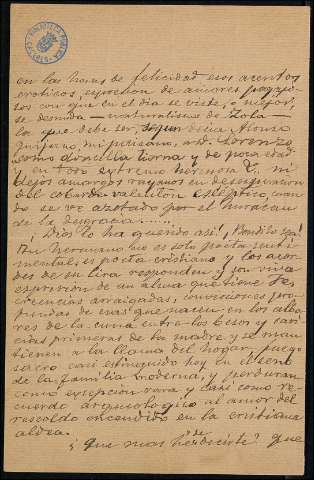 en las horas de felicidad esos acentos
eróticos, expresion de amores pegajo-
sos con que en el dia se viste, o mejor,
se desnuda — naturalismo de Zola —
la que debe ser, segun decia Alonso
Quijano, mi paisano, a D. Lorenzo,
como doncella tierna y de poca edad
y en todo extremo hermosa &, ni
dejos amargos rayanos en desesperacion
del cobarde valenton esceptico cuan-
do se ve azotado por el huracan
de la desgracia......
¡Dios lo ha querido asi! ¡Bendito sea!
Su hermano no es solo poeta senti-
mental, es poeta cristiano y los acor-
des de su lira responden y son viva
expresion de un alma que tiene fe,
creencias arraigadas, convicciones pro-
fundas de esas que nacen en los albo-
res de la cuna entre los besos y cari-
cias primeras de la madre y se man-
tienen a la llama del hogar, fuego
sacro casi estinguido hoy en el seno
de la familia moderna, y perduran
como excepcion rara y casi como re-
cuerdo arqueologico al amor del
rescoldo encendido en la cristiana
aldea.
¿Que mas he de decirte? que